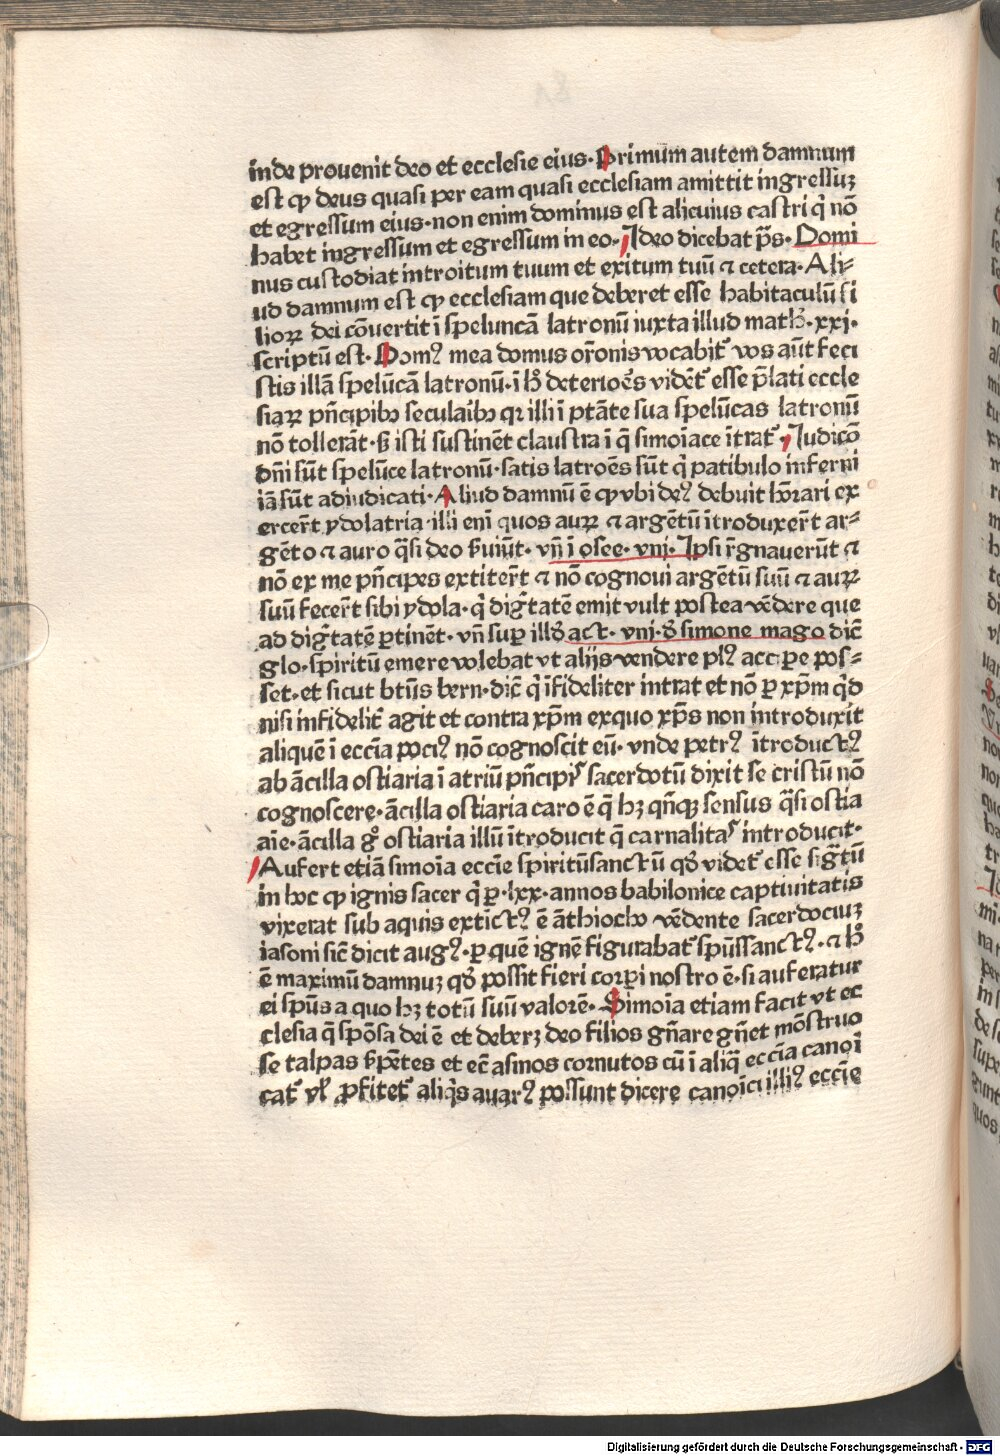 inde provenit deo et ecclesie eius· Primum autem damnum
est qꝫ deus quasi per eam quasi ecclesiam amittit ingressuꝫ
et egressum eius·non enim dominus est alicuius castri q̇ nō
habet ingressum et egressum in eo· Ideo dicebat p̄s· Domi
nus custodiat introitum tuum et exitum tuū ⁊ cetera· Ali⸗
ud damnum est qꝫ ecclesiam que deberet esse habitaculū fi
lioꝝ dei cōuertit ī speluncā latronū iuxta illud math̄·xxi·
scriptū est· Domꝰ mea domus orōnis vocabit᷑ vos aūt feci
stis illā spelūcā latronū·ī hͦ deteriores vidēt᷑ esse p̄lati eccle
siaꝝ pn̄cipibꝫ seculaībꝫ qꝛ illi ī ptāte sua spelūcas latronū
nō tollerāt·sꝫ isti sustinēt claustra ī q̇ simoīace ītrat᷑ Iudicō
dn̄i sūt spelūce latronū·satis latroēs sūt q̇ patibulo inferni
iā sūt adiudicati· Aliud damnū ē qꝫ vbi deꝰ debuit hōrari ex
ercer̄t ydolatria·illi eni quos auꝝ ⁊ argētū ītroduxer̄t ar⸗
gēto ⁊ auro q̄si deo ẜuiūt· vn̄ ī osee· viij· Ipsi r̄gnauerūt ⁊
nō ex me pn̄cipes extiter̄t ⁊ nō cognoui argētū suū ⁊ auꝝ
suū fecer̄t sibi ydola· q̇ digtātē emit vult postea vēdere que
ad digtātē ꝑtinēt· vn̄ suꝑ illᷘ act· viij· dᷘ simone mago dic̄
glo·spiritū emere volebat vt alijs vendere plꝰ accipe pos⸗
set·et sicut btūs bern·dic̄ q̇ īfideliter intrat et nō ꝑ xp̄m qͥd
nisi infidelit᷑ agit et contra xp̄m exquo xp̄s non introduxit
aliquē ī eccīa pociꝰ nō cognoscit eū· vnde petrꝰ ītroductꝰ
ab ācilla ostiaria ī atriū pn̄cipis sacerdotū dixit se cristū nō
cognoscere·ācilla ostiaria caro ē q̄ hꝫ qn̄qꝫ sensus q̄si ostia
aīe·ācilla gͦ ostiaria illū ītroducit q̄ carnalitas introducit·
Aufert etiā simoīa eccīe spiritūsanctū qᷘ videt᷑ esse sigtū
in hoc qꝫ ignis sacer q̇ ꝑ·lxx·annos babilonice captiuitatis
vixerat sub aquis extīctꝰ ē āthiocho vēdente sacerdociuꝫ
iasoni sic̄ dicit augꝰ·ꝑ quē ignē figurabat᷑ spūssanctꝰ·⁊ hͦ
ē maximū damnuꝫ qᷘ possit fieri corꝑi nostro ē·si auferatur
ei spūs a quo hꝫ totū suū valorē· Simoīa etiam facit vt ec
clesia q̄ spōsa dei ē et deberꝫ deo filios gn̄are gn̄et mōstruo
se talpas ẜpētes et ec̄ asinos cornutos cū ī aliq̄ eccīa canoī
cat᷑ vł ꝓfitet᷑ aliq̇s auarꝰ possunt dicere canoīci illiꝰ eccīe
Digitalisierung gefördert durch die Deutsche Forschungsgemeinschaft - DFG